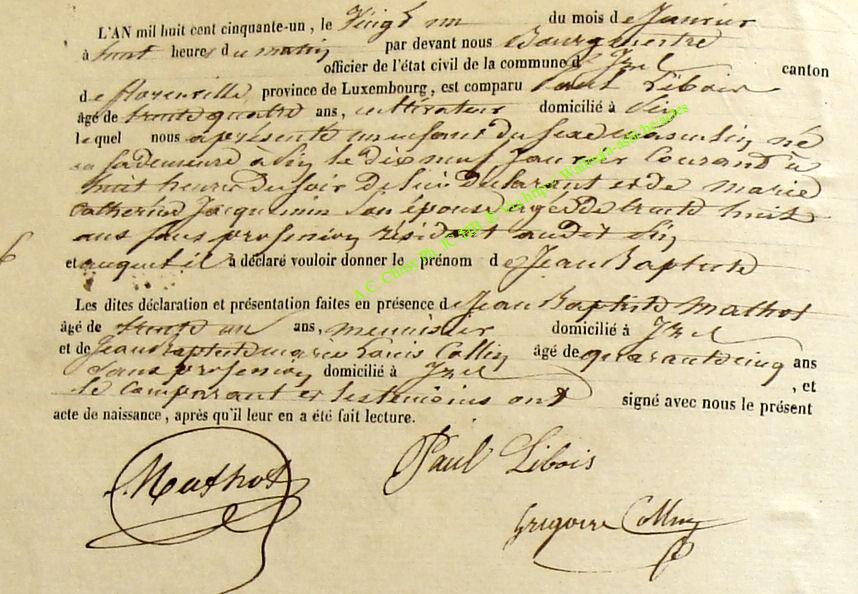 L'AN mil huit cent cinquante-un, le Vingt un du mois de Janvier
à huit heures du matin par devant nous Bourgmestre
officier de l'état civil de la commune d'Izel canton
de florenville province de Luxembourg, est comparu Paul Libois
âgé de trente quatre ans, cultivateur domicilié à
lequel nous a présenté un enfant du sexe masculin né
en sa demeure à le dix neuf Janvier Courant à
huit heures du soir de lui declarant et de marie
Catherine Jacquemin son épouse agée de trente huit
ans sans profession résidant audit
et auquel il a déclaré vouloir donner le prénom de Jean Baptiste
Les dites déclaration et présentation faites en présence de Jean Baptiste Mathot
âgé de trente un ans, menuisier domicilié à Izel
et de Jean Baptiste marie Louis Collin âgé de quarante cinq ans
sans profession domicilié à Izel , et
le Comparant et les temoins ont signé avec nous le présent
acte de naissance, après qu'il leur en a été fait lecture.
Mathot
Paul Libois
Grégoire Collin